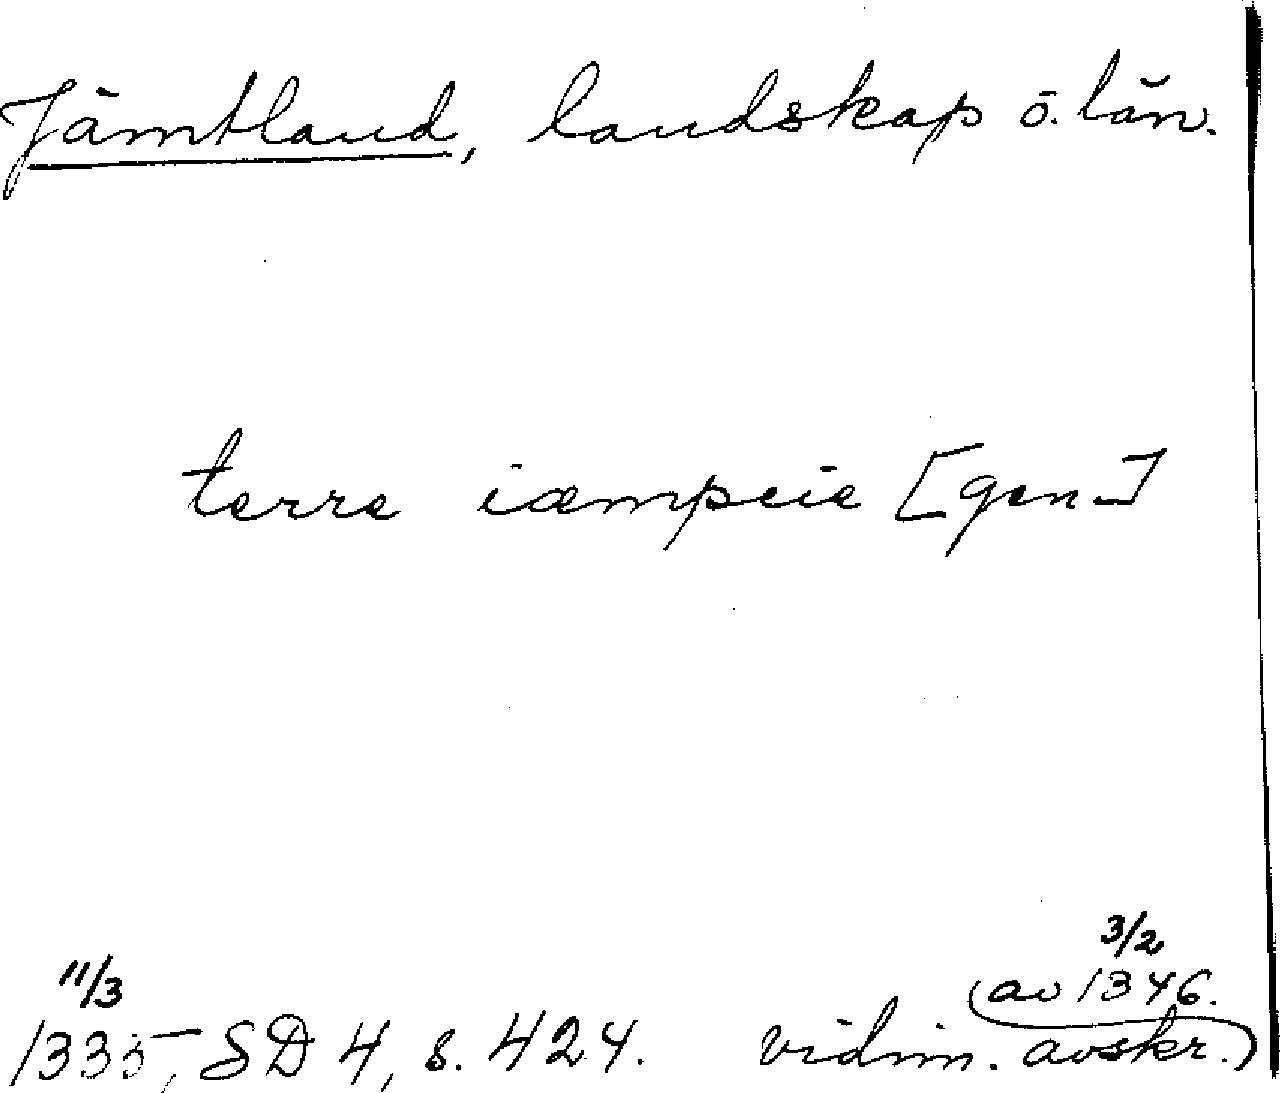 Jämtland, landskap o. län.
terre iæmpcie [gen.]
3/2
11/3 av 1346.
1335, SD 4, s. 424. vidim. avskr.)